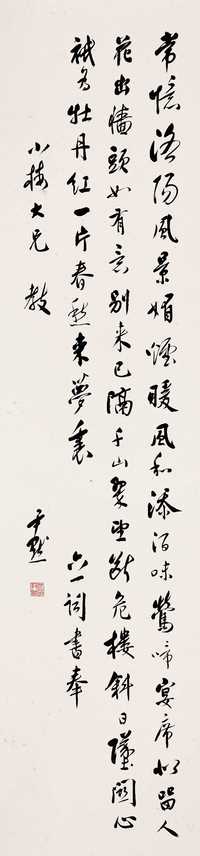 常憶洛陽風景媚煙暖風和添酒味鶯啼宴席似留人
花出牆頭如有意別來已隔千山翠望斷危樓斜日墜關心
祇為牡丹紅一片春愁來夢裏 六一詞書奉
小梅大兄 教 尹默